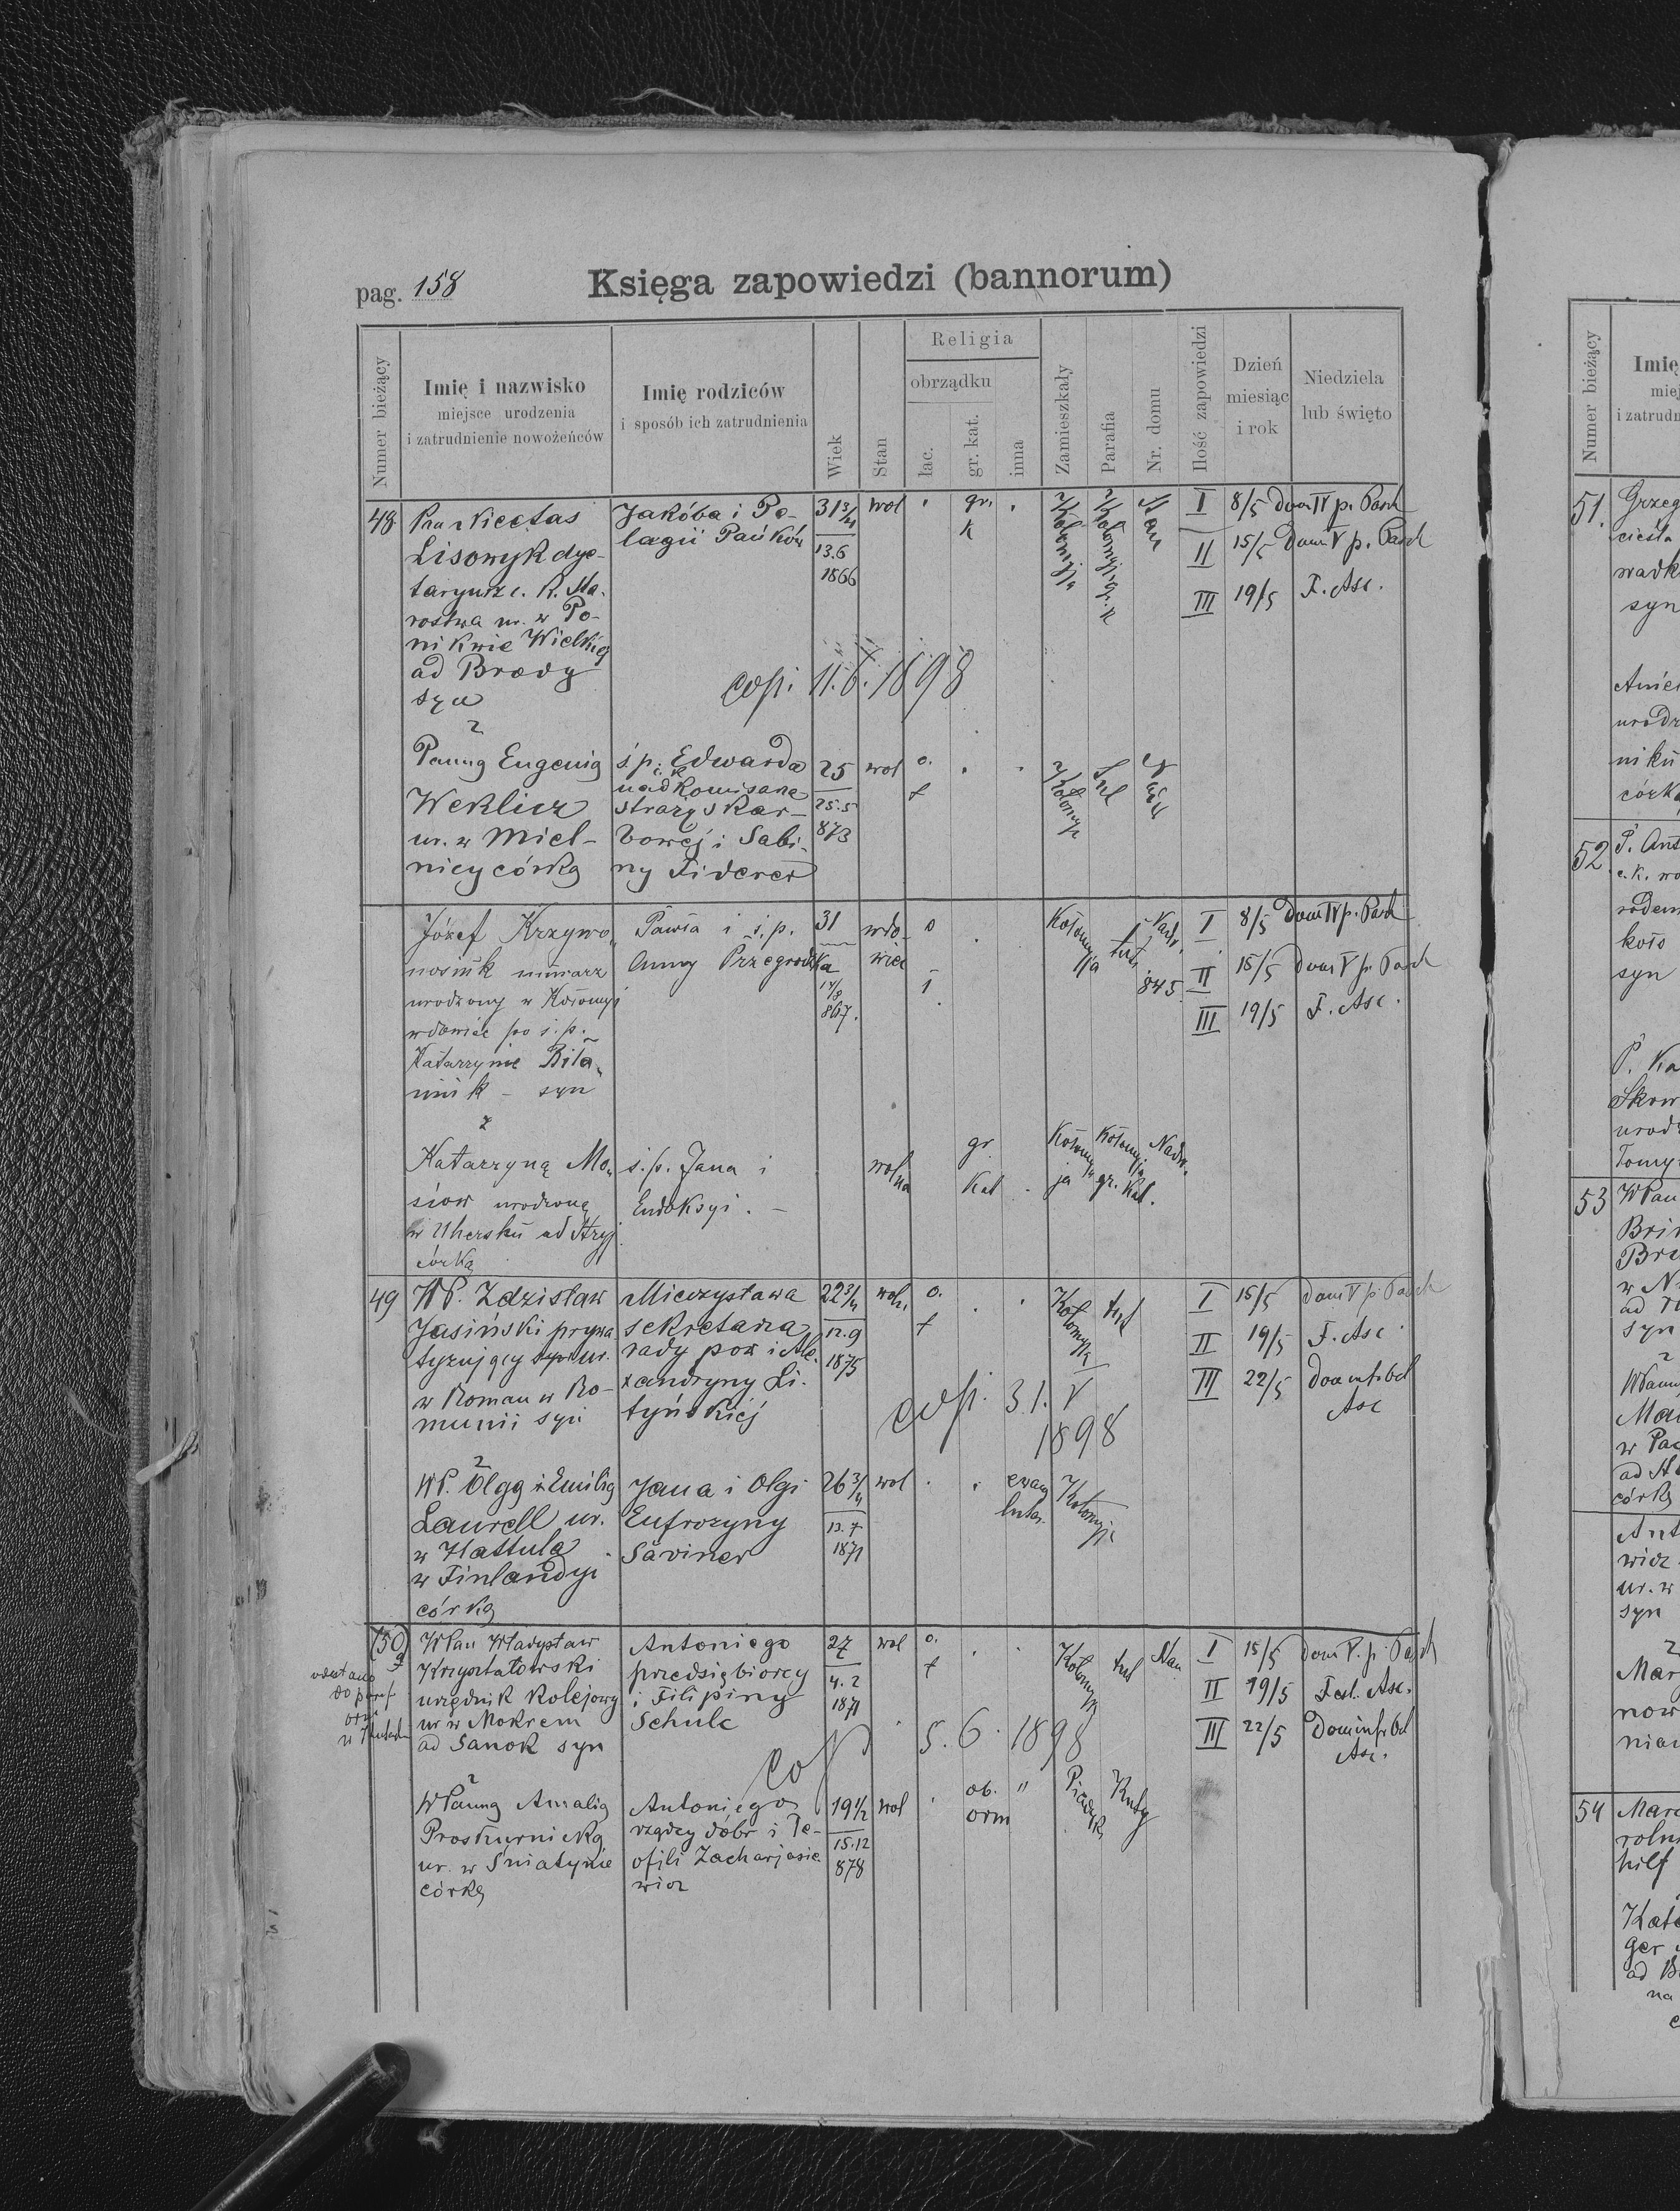 pag. 158
Księga zapowiedzi (bannorum)
Numer bieżący
Imię i nazwisko
miejsce urodzenia
i zatrudnienie nowożeńców
Imię rodziców
i sposób ich zatrudnienia
Wiek
Stan
Religia
obrządku
łac.
gr. kat.
inna
Zamieszkały
Parafia
Nr. domu
Ilość zapowiedzi
Dzień
miesiąc
i rok
Niedziela
lub święto
48
Pan Nicetas
Lisowyk dye-
taryusz c. k. sta-
rostwa ur. w Po-
nikwie Wielkiej
ad Brody
syn
z
Jakóba i Pe-
lagii Pańków
31 3/4
13.6
1866
wol
gr.
k
Kołomyja
Kołomyja gr. k
I 8/5 Dom IV p. Pasch
II 15/5 Dom V p. Pasch
III 19/5 F. Asc.
cop. 11.6.1898
Panną Eugenią
Weklicz
ur. w Miel-
nicy córką
ś.p. Edwarda
c. k
nadkomisarza
straży skar-
bowej i Sabi-
ny Fiderer
25
25.5
873
wol
o.
Kołomyja
Józef Krzywo-
nosiuk murarz
urodzony w Kołomyi
wdowiec po ś.p.
Katarzynie Biła-
niuk - syn
z
Pawła i ś.p.
Anny Przegrodzka
31
14/8
867.
wdo-
wiec
Kołomyja
tut.
Nadw.
845
I 8/5 Dom IV p. Pasch
II 15/5 Dom V p. Pasch
III 19/5 F. Asc.
Katarzyną Mo-
siow urodzoną
w Uhersku ad Stryj
córką
ś.p. Jana i
Eudoksyi. -
wolna
gr
kat
Kołomyja
Kołomyja gr. kat.
Nadw.
49
WP. Zdzisław
Jasiński prywa
tyzujący ur.
w Roman w Ro-
munii syn
z
Mieczysława
sekretarza
rady pow i Ale-
xandryny Li-
tyńskiéj
22 3/4
12.9
1875
woln.
o.
Kołomyja
tut
I 15/5 Dom V p. Pasch
II 19/5 F. Asc
III 22/5 Dom infr Oct
Asc
cop. 31. V
1898
WP. Olgą i Emilią
Laurell ur.
w Hattula
w Finlandyi
córką
Jana i Olgi
Eufrozyny
Saviner
26 3/4
13.7
1871
wol
ewang
luter.
Kołomyja
50
WPan Władysław
Krzyształowski
urzędnik kolejowy
ur w Mokrem
ad Sanok syn
z
Antoniego
przedsiębiorcy
i Filipiny
Schulc
27
4.2
1871
wol
o.
Kołomyja
tut
I 15/5 Dom V. p. Pasch
II 19/5 Fest. Asc.
III 22/5 Dom infr Oct
Asc.
cop 5.6.1898
WPanną Amalią
Proskurnicką
ur. w Śniatynie
córką
Antoniego
rządcy dóbr i Te-
ofili Zacharjasie-
wicz
19 1/2
15.12
878
wol
ob.
orm
"
Kuty
Numer bieżący
Imię
51.
Grzeg
cieśla
syn
52
P. Ant
c.k.
koło
syn
P. Ka
Skow
53
WPan
syn
z
w Pac
córką
Ant
wicz
ur. w
syn
z
Mar
now
54
Kata
ger
na